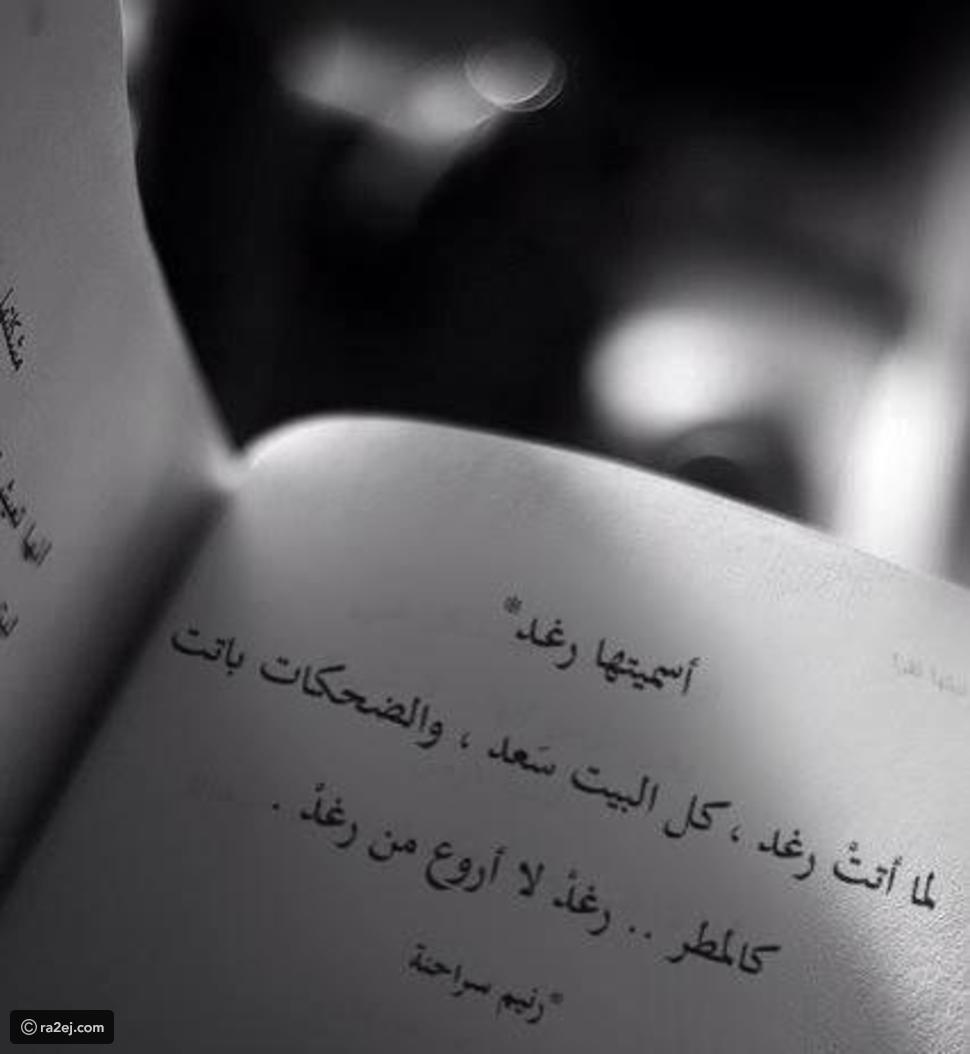 أسميتها رغد*
لما أتتْ رغد ، كل البيت سَعد ، والضحكات باتت
كالمطر .. رغدْ لا أروع من رغدْ .
*رنيم سراحنة
© ra2ej.com